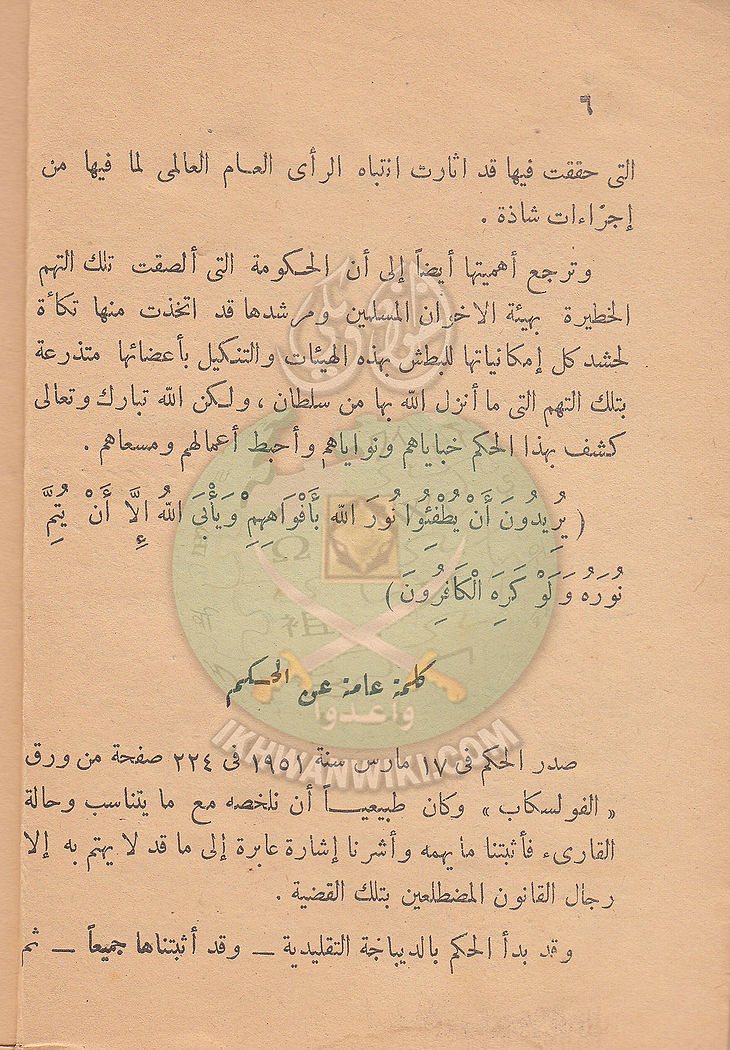 ٦
التى حققت فيها قد اثارت انتباه الرأى العـام العالمى لما فيها من
إجراءات شاذة .
وترجع أهميتها أيضاً إلى أن الحكومة التى ألصقت تلك التهم
الخطيرة بهيئة الاخوان المسلمين ومرشدها قد اتخذت منها تكأة
لحشد كل إمكانياتها للبطش بهذه الهيئات والتنكيل بأعضائها متذرعة
بتلك التهم التى ما أنزل الله بها من سلطان ، ولكن الله تبارك وتعالى
كشف بهذا الحكم خباياهم ونواياهم وأحبط أعمالهم ومسعاهم .
( يُرِيدُونَ أَنْ يُطْفِئُوا نُورَ الله بأَفْوَاهِهِمْ وَيَأْبَى اللهُ إِلَّا أَنْ يُتِمَّ
نُورَهُ وَلَوْ كَرِهَ الْكَافِرُونَ )
كلمة عامة عن الحكم
صدر الحكم فى ١٧ مارس سنة ١٩٥١ فى ٢٢٤ صفحة من ورق
« الفولسكاب » وكان طبيعيـــاً أن نلخصه مع ما يتناسب وحالة
القارىء فأثبتنا ما يهمه وأشرنا إشارة عابرة إلى ما قد لا يهتم به إلا
رجال القانون المضطلعين بتلك القضية .
وقد بدأ الحكم بالديباجة التقليدية ــ وقد أثبتناها جميعاً ــ ثم
وأعدوا
IKHWANWIKI.COM